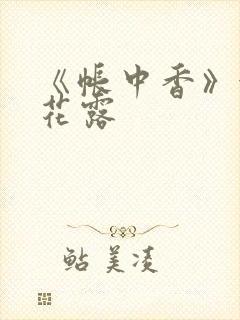 《帐中香》
花露
鲇美凌